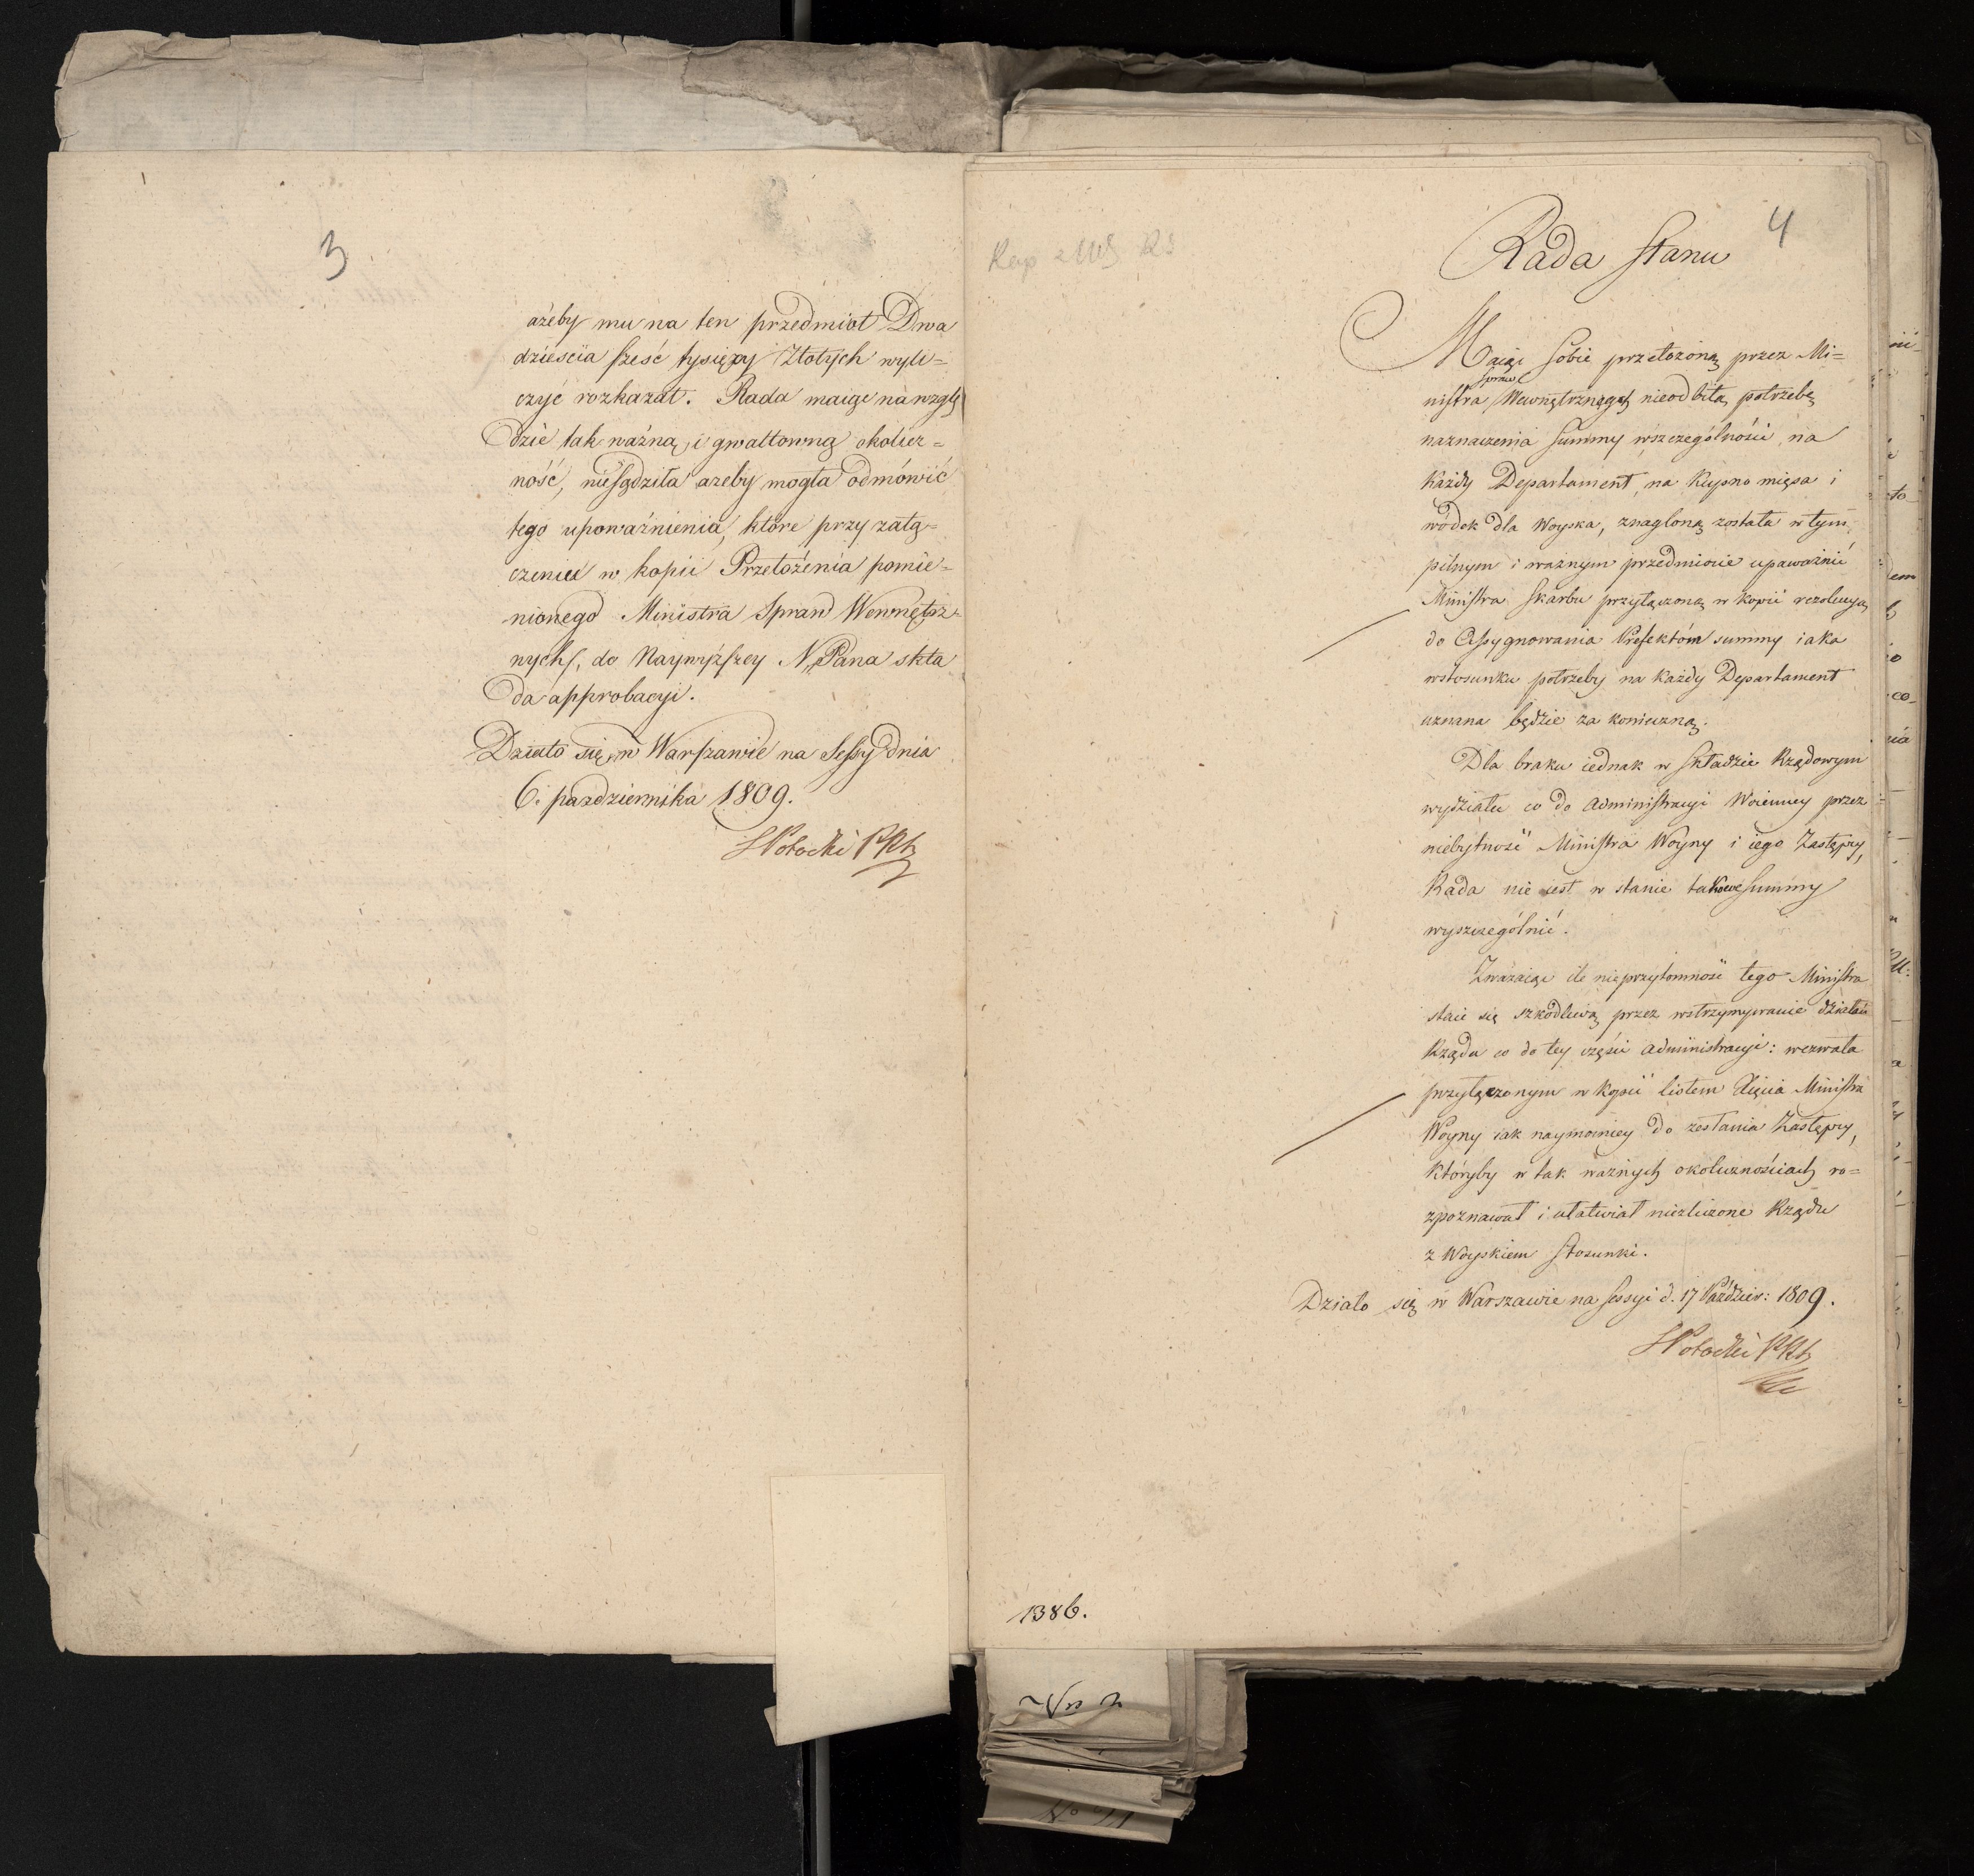 3
ażeby mu na ten przedmiot Dwa
dziescia sześć tysięcy Złotych wyli=
czyć rozkazał. Rada maiąc na wzglę
dzie tak ważną i gwałtowną okolicz=
ność, niesądziła azeby mogła odmówić
tego upoważnienia, które przy załą=
czeniu w kopii Przełożenia pomie=
nionego Ministra Spraw Wewnętrz=
nych, do Naywyższey N. Pana skła
da approbacyi.
Działo się w Warszawie na Sessyi dnia
6. pazdziernika 1809.
SPotocki PRS
4
Rada Stanu
Maiąc sobie przełożoną przez Mi=
spraw
nistra Wewnętrznych nieodbitą potrzebę
naznaczenia Summy wszczególności na
każdy Departament, na kupno mięsa i
wódek dla Woyska, znagloną została w tym
pilnym i ważnym przedmiocie upoważnić
Ministra Skarbu przyłączoną w kopii rezolucyą
do Assygnowania Prefektóm summy iaka
wstosunku potrzeby na każdy Departament
uznana będzie za konieczną.
Dla braku iednak w składzie Rządowym
wydziału co do administracyi Woienney przez
niebytność Ministra Woyny i iego Zastępcy,
Rada nie iest w stanie takowe summy
wyszczególnić.
Zważaiąc ile nieprzytomność tego Ministra
staie się szkodliwą przez wstrzymywanie działań
Rządu co do tey części administracyi: wezwała
przyłączonym w kopii listem Xięcia Ministra
Woyny iak naymocniey do zesłania Zastępcy,
któryby w tak ważnych okolicznościach ro=
zpoznawał i ułatwiał niezliczone Rządu
z Woyskiem stosunki.
Działo się w Warszawie na sessyi d. 17 Paździer: 1809.
SPotocki PRS
1386.